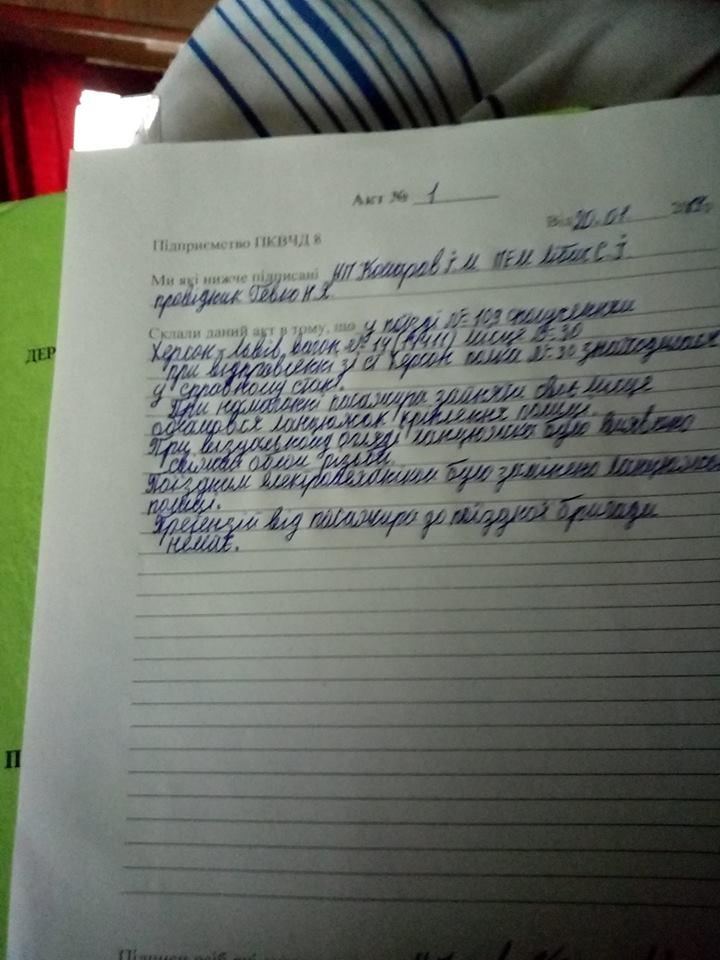 Акт № 1
Від 20.01
Підприємство ПКВЧД 8
Ми які нижче підписані НП Комаров І.М ПЕМ С.І.
провідник Гевло Н.Я.
Склали даний акт в тому, що у поїзді № 109 сполученням
Херсон-Львів, вагон № 14 місце № 30
при відправленні зі ст Херсон полка № 30 знаходилася
у справному стані.
При намаганні пасажира зайняти своє місце
обламався ланцюжок кріплення полиці.
При візуальному огляді ланцюжка було виявлено
облом різьби.
Поїздним електромеханіком було замінено ланцюжок
полиці.
Претензій від пасажира до поїздної бригади
немає.
ДЕР
П